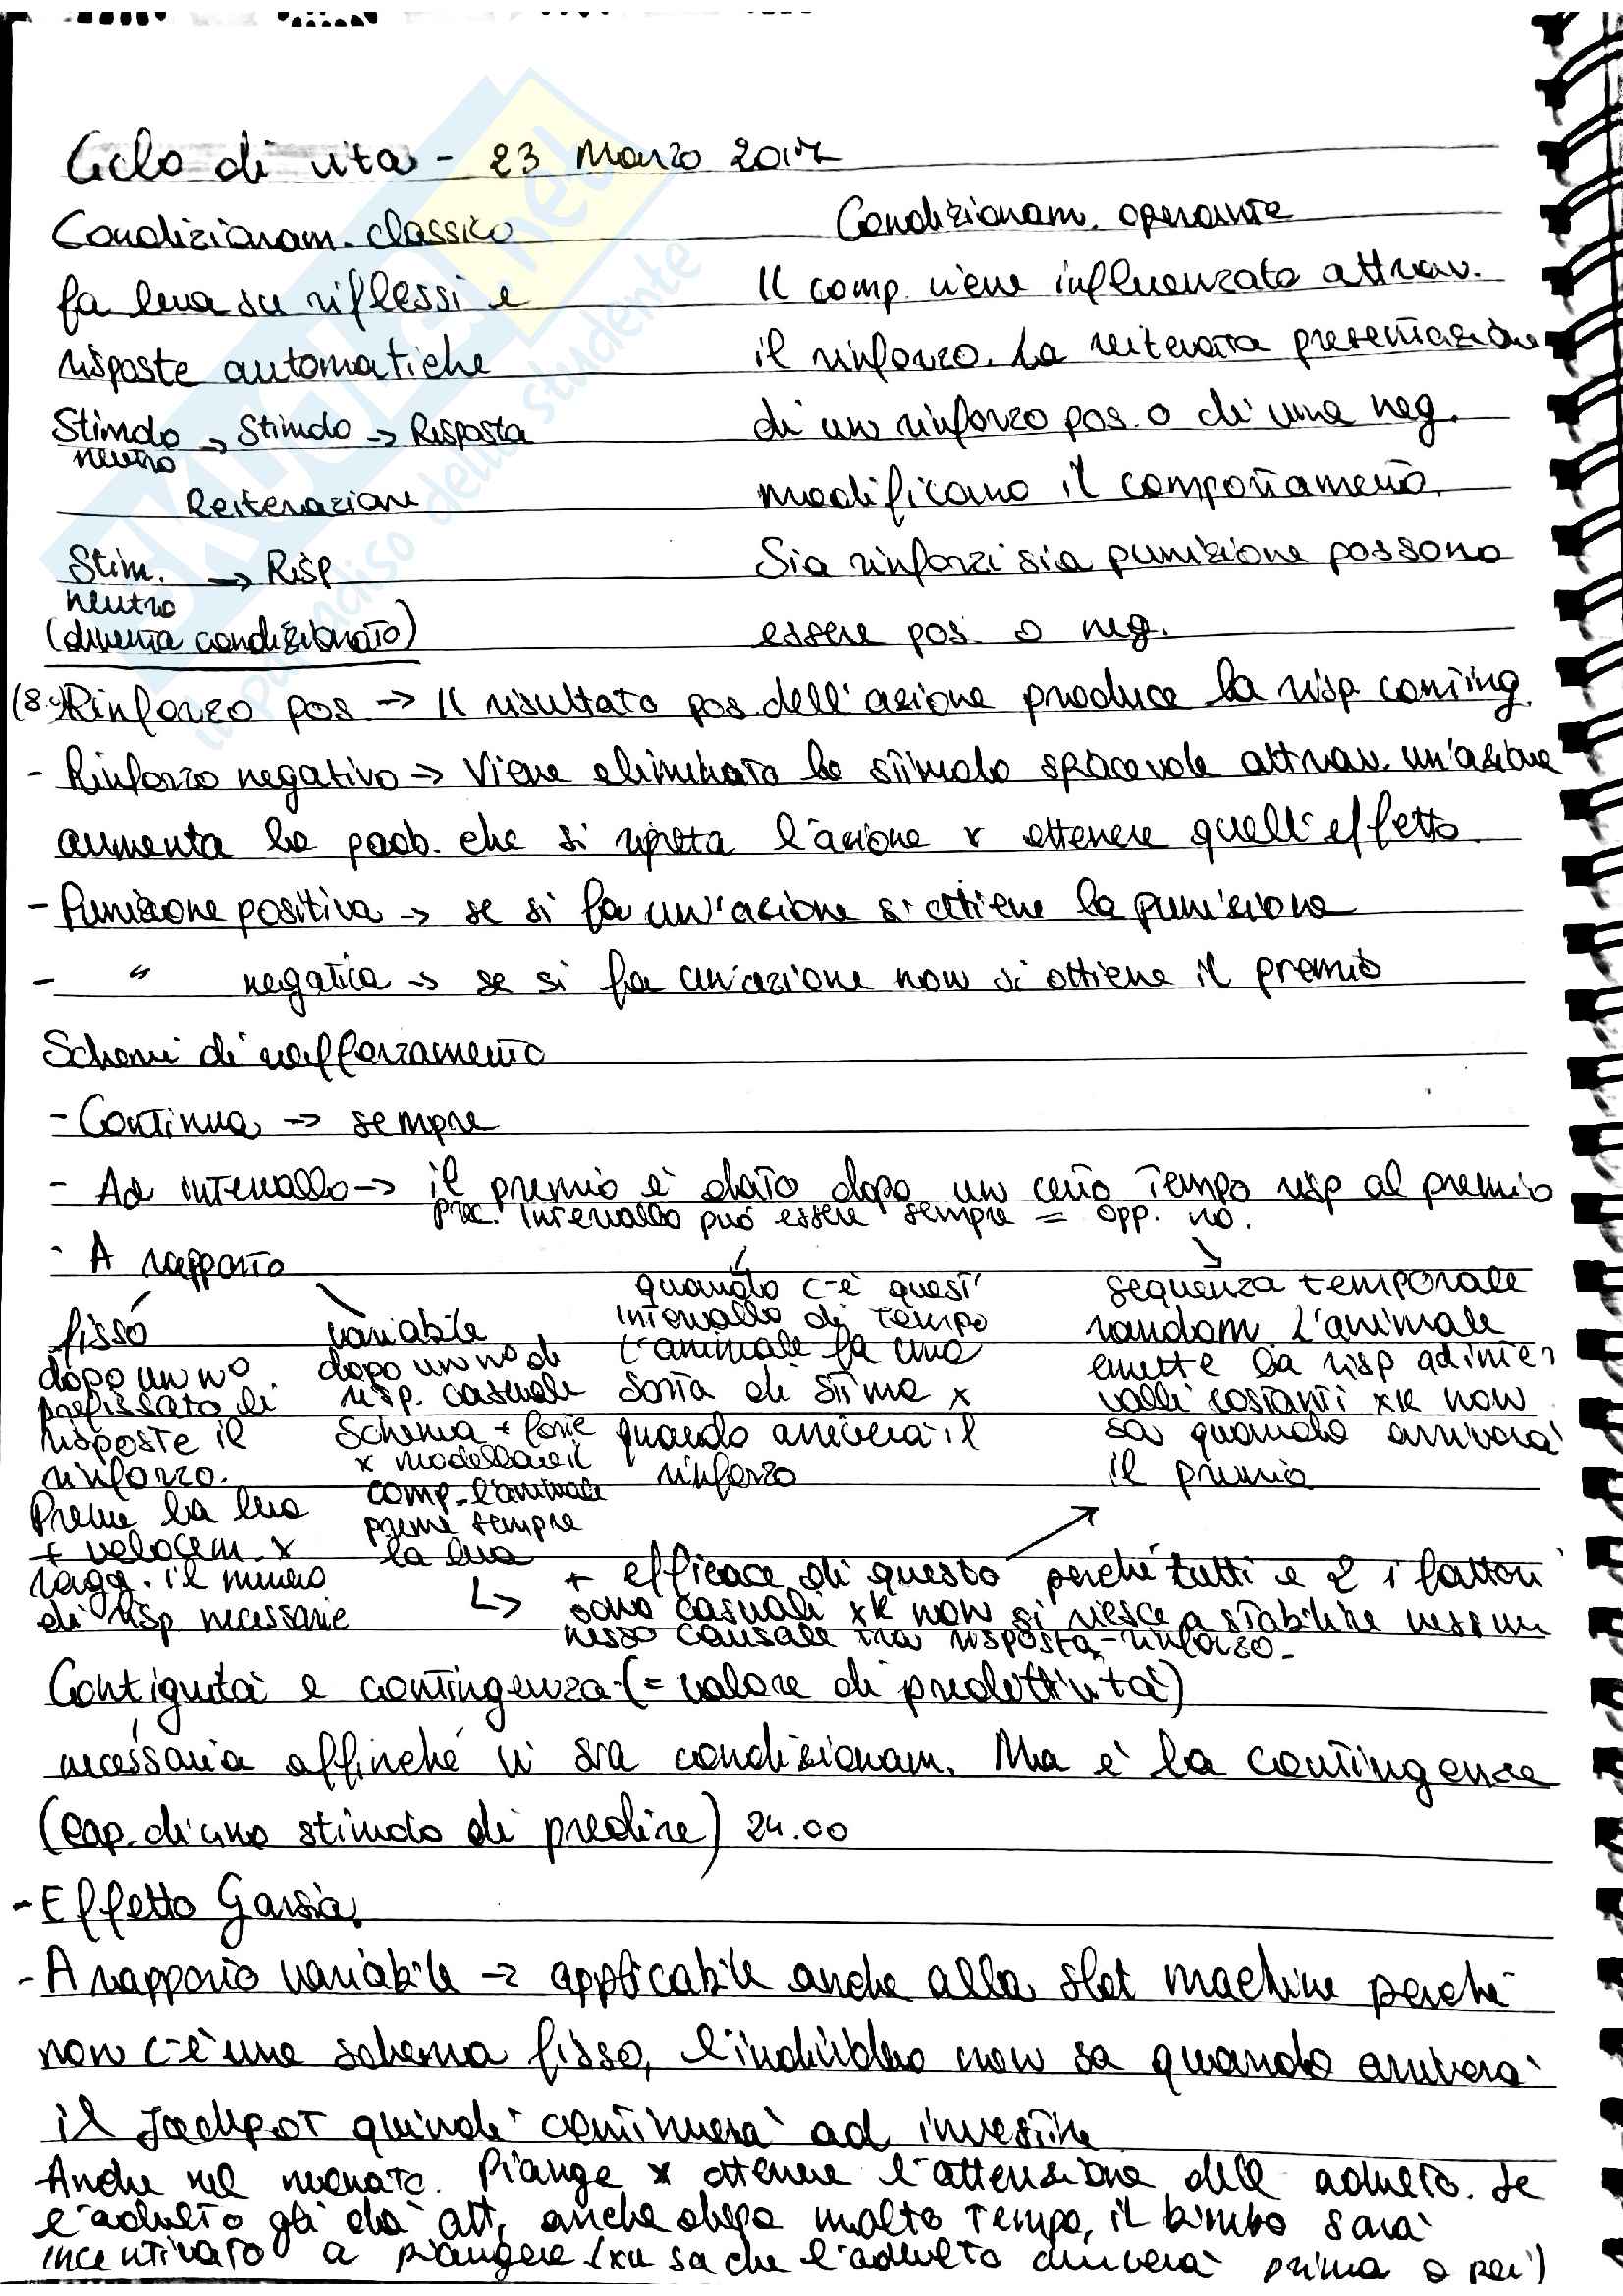 Ciclo di vita - 23 Marzo 2017
Condizionam. classico
fa leva su riflessi e
risposte automatiche
Stimolo neutro -> Stimolo -> Risposta
Reiterazione
Stim. neutro -> Risp
(diventa condizionato)
Condizionam. operante
Il comp. viene influenzato attrav.
il rinforzo. La reiterata presentazione
di un rinforzo pos. o di uno neg.
modificano il comportamento.
Sia rinforzi sia punizione possono
essere pos. o neg.
Rinforzo pos. -> Il risultato pos. dell'azione produce la risp conting.
- Rinforzo negativo -> Viene eliminato lo stimolo spiacevole attrav. un'azione
aumenta la prob. che si ripeta l'azione x ottenere quell'effetto.
- Punizione positiva -> se si fa un'azione si ottiene la punizione
- " negativa -> se si fa un'azione non si ottiene il premio
Schemi di rafforzamento
- Continua -> sempre
- Ad intervallo -> il premio è dato dopo un certo tempo risp al premio
prec. Intervallo può essere sempre = opp. no.
- A rapporto
fisso
dopo un n°
prefissato di
risposte il
rinforzo.
Preme la leva
+ velocem. x
ragg. il numero
di risp. necessarie
variabile
dopo un n° di
risp. casuale
Schema + forte
x modellare il
comp. l'animale
preme sempre
la leva
quando c'è quest'
intervallo di tempo
l'animale fa una
sorta di stima x
quando arriverà il
rinforzo
sequenza temporale
random L'animale
emette la risp ad inter
valli costanti xk non
sa quando arriverà
il premio
+ efficace di questo perché tutti e 2 i fattori
sono casuali xk non si riesce a stabilire nessun
nesso causale tra risposta-rinforzo.
Contiguità e contingenza (= valore di predittività)
necessaria affinché vi sia condizionam. Ma è la contingenza
(cap. di uno stimolo di predire) 24.00
- Effetto Garsia.
- A rapporto variabile -> applicabile anche alla slot machine perché
non c'è uno schema fisso, l'individuo non sa quando arriverà
il Jackpot quindi continuerà ad investire
Anche nel neonato. Piange x ottenere l'attenzione dell adulto. Se
l'adulto gli dà att, anche dopo molto tempo, il bimbo sarà
incentivato a piangere (xk sa che l'adulto arriverà prima o poi)
SKUOLA.net
il paradiso dello studente